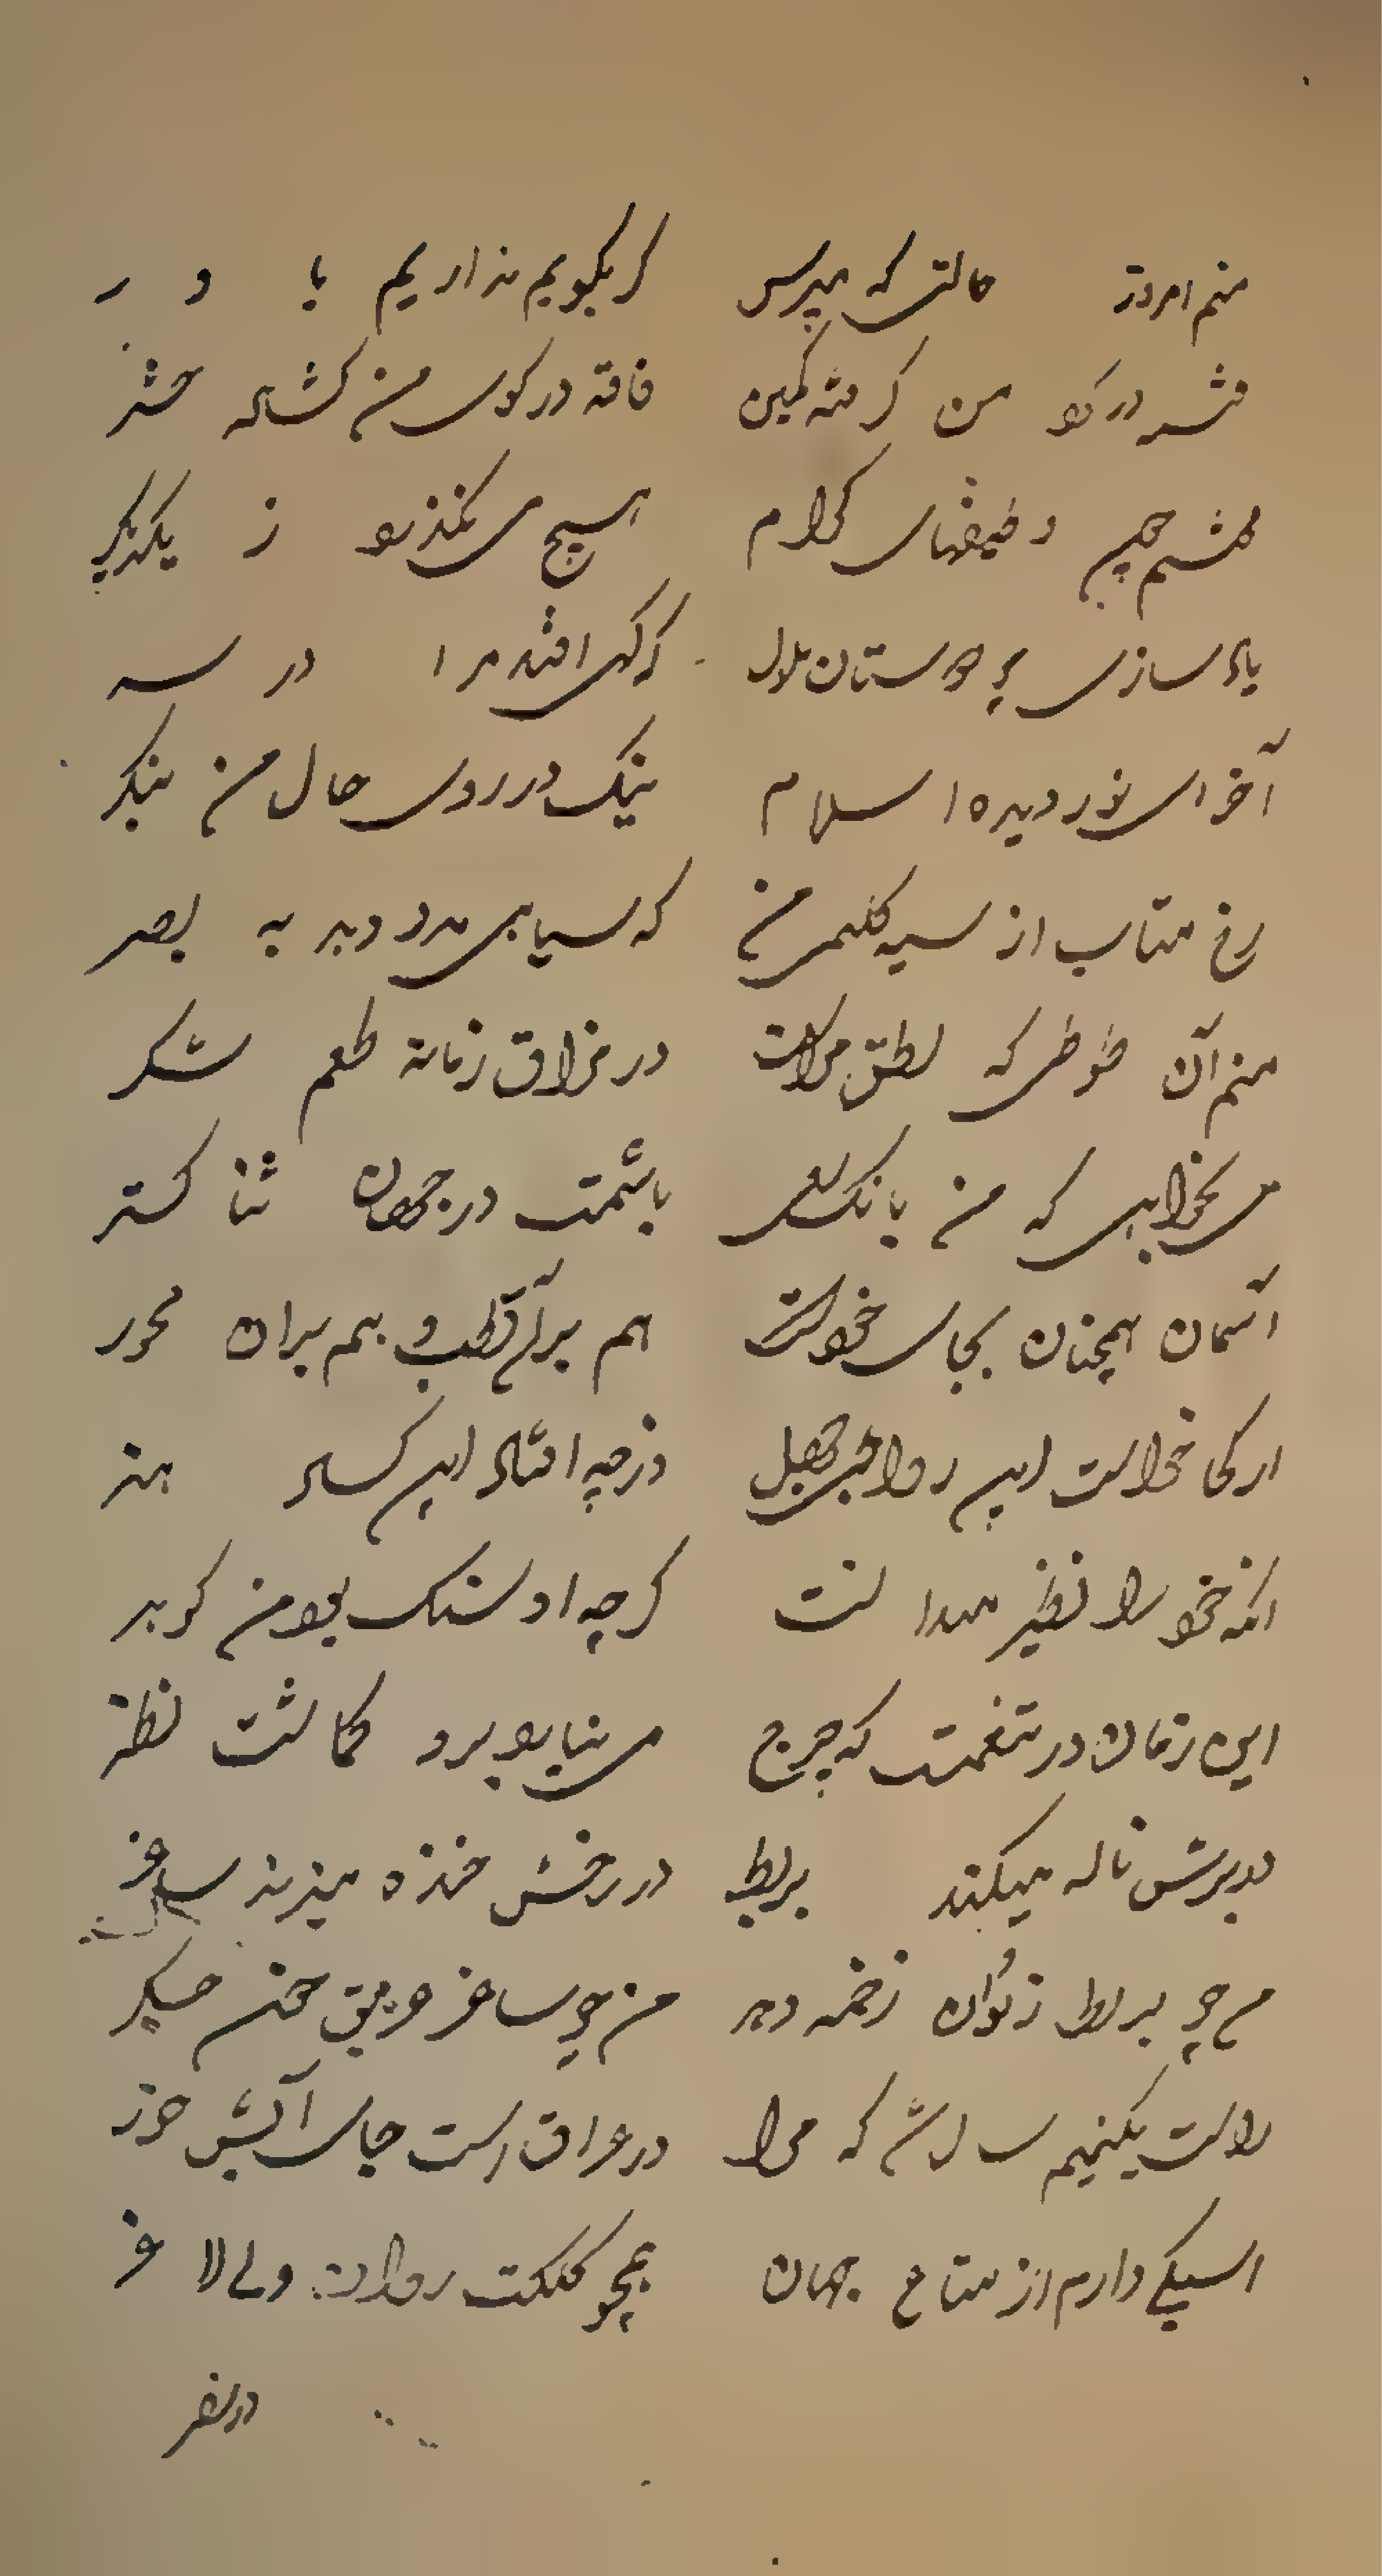 منم امروز حالتی که مپرس کر بکویم نداریم با و ر
فتنه در کو من کرفته کمین فاقه در کوی من کشاده حشر
چشم وظیفهای کرام هیچ می نکذرد ز یکدیکر
یاد سازی چو دوستان ملول که کهی افتدم را در سر
آخر ای نور دیده اسلام نیک در روی حال من بنکر
رخ متاب از سیه کلیمی من که سیاهی مدد دهد به بصر
منم آن طوطی که نطق مراست در مذاق زمانه طعم شکر
می نخواهی که من بانک بلی باشمت در جهان ثنا کستر
آسمان همچنان بجای خودست هم بران قطب و هم بران محور
از کجا خواست این رواج جهل وز چه افتاد این کساد هنر
انکه خود را نظیر میدانست کرچه او سنک بود من کوهر
این زمان در تنعمست که چرخ می نیابد برو مجالت نظر
در برش ناله میکند بربط در رخش خنده میزند ساغر
من چو بربط زنوان زخمه دهر من چو ساغر حریق خون جکر
راست یکنیم سال شد که مرا در عراق است جای آبشخور
اسبکی دارم از متاع جهان همچو کلکت روان ولی لاغر
در سفر